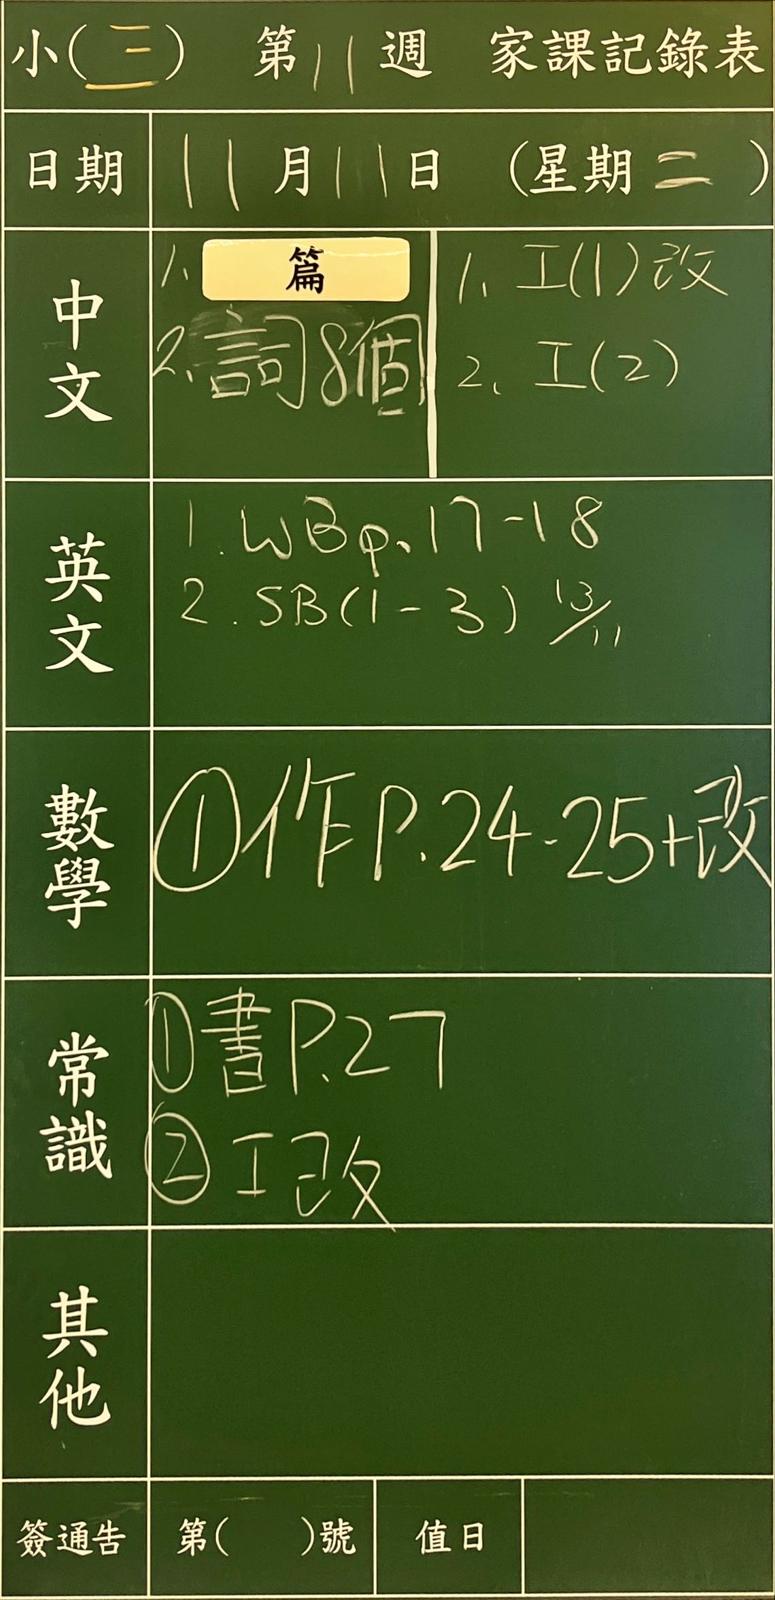 小(三) 第11週 家課記錄表
日期 11月11日 (星期二)
中文
1. 篇
2. 詞8個
1. 工(1)改
2. 工(2)
英文
1. WB p.17-18
2. SB(1-3) 13/11
數學
①作P.24-25+改
常識
①書P.27
②工改
其他
簽通告 第( )號 值日